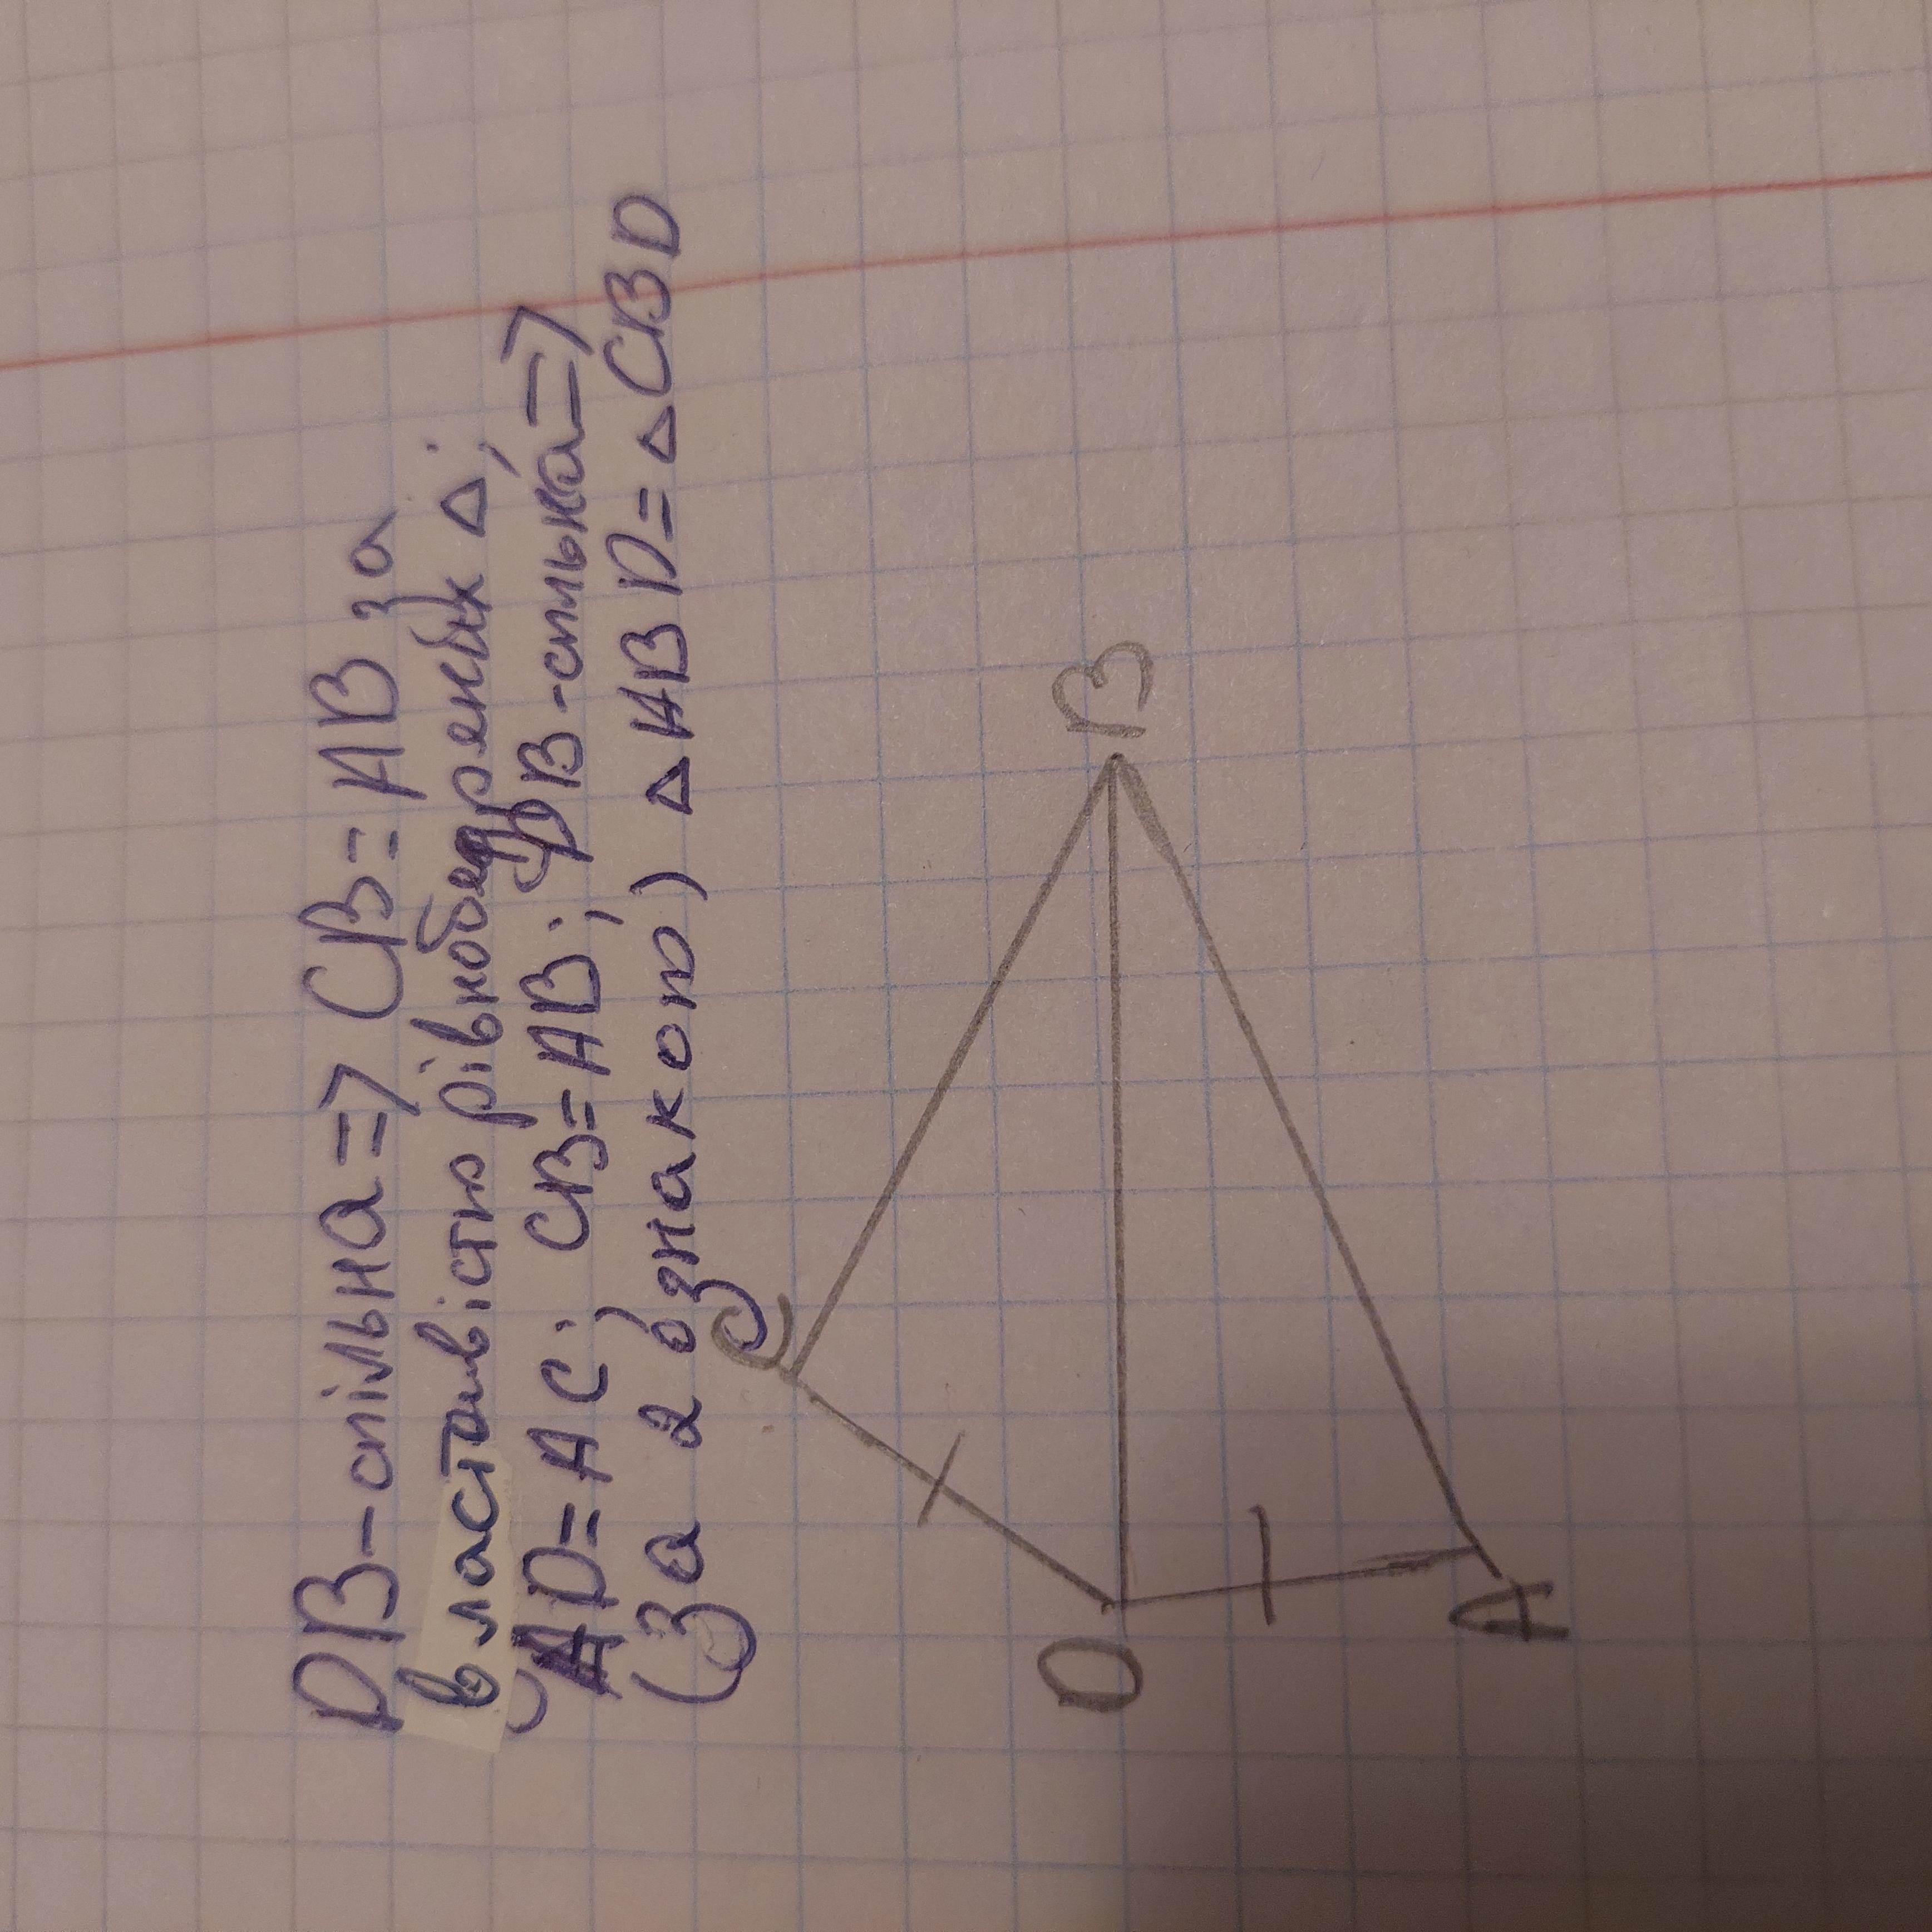 DB-спільна=> CB=AB за
властивістю рівнобедренбих Δ;
AD=AC; CB=AB; DB-спільна=>
(за 2 ознакою) ΔABD=ΔCBD
C
B
D
A